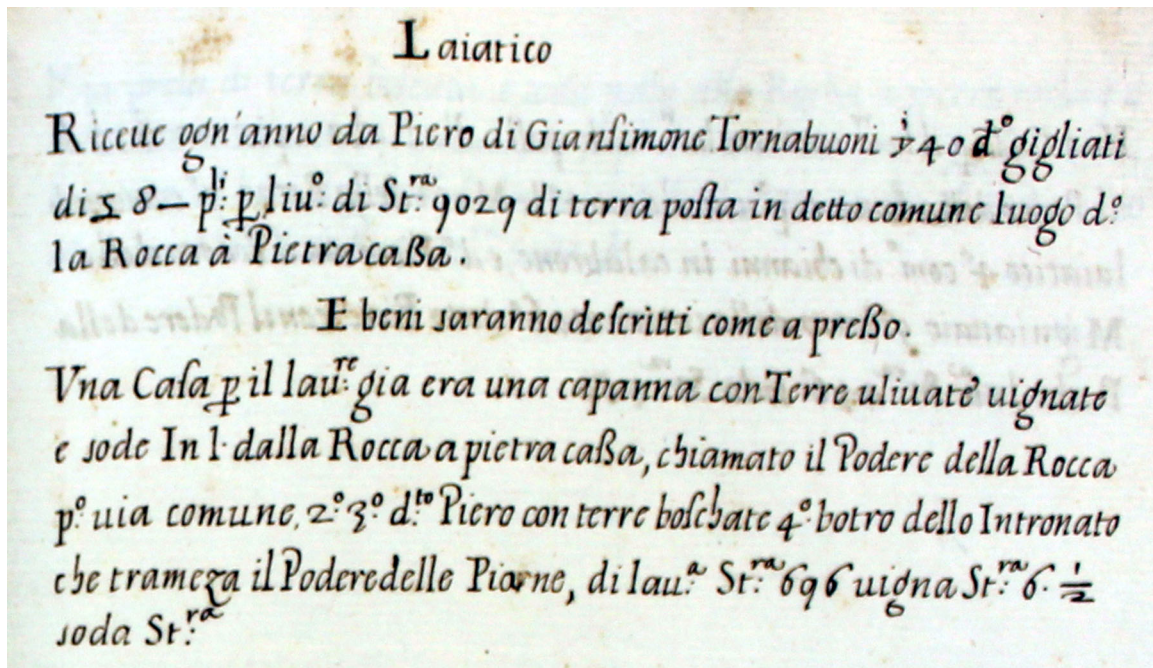 Laiatico
Riceue ogn'anno da Piero di Gianſimone Tornabuoni 40 d.º gigliati
di 8— p.li p liu.º di St.ra 9029 di terra poſta in detto comune luogo d.º
la Rocca à Pietracaßa.
E beni saranno deſcritti come a preßo.
Vna Caſa p il lau.re gia era una capanna con Terre uliuate uignate
e sode In l. dalla Rocca a pietra caßa, chiamato il Podere della Rocca
p.º uia comune, 2.º 3.º d.to Piero con terre boſchate 4.º botro dello Intronato
che trameza il Podere delle Piarne, di lau.a St.ra 696 uigna St.ra 6. ½
soda St.ra